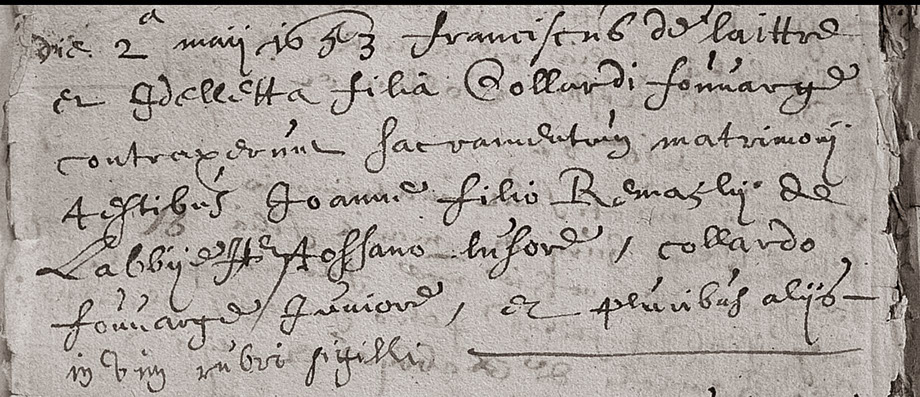 die 2a maij 1653 franciscus de laittre
et Idelletta filia Collardi fouuarge
contraxerunt sacramentum matrimonij
testibus Joanne filio Remaclij de
Labbije lusore, collardo
fouuarge Juniore, et pluribus alijs
in vim rubri sigilli